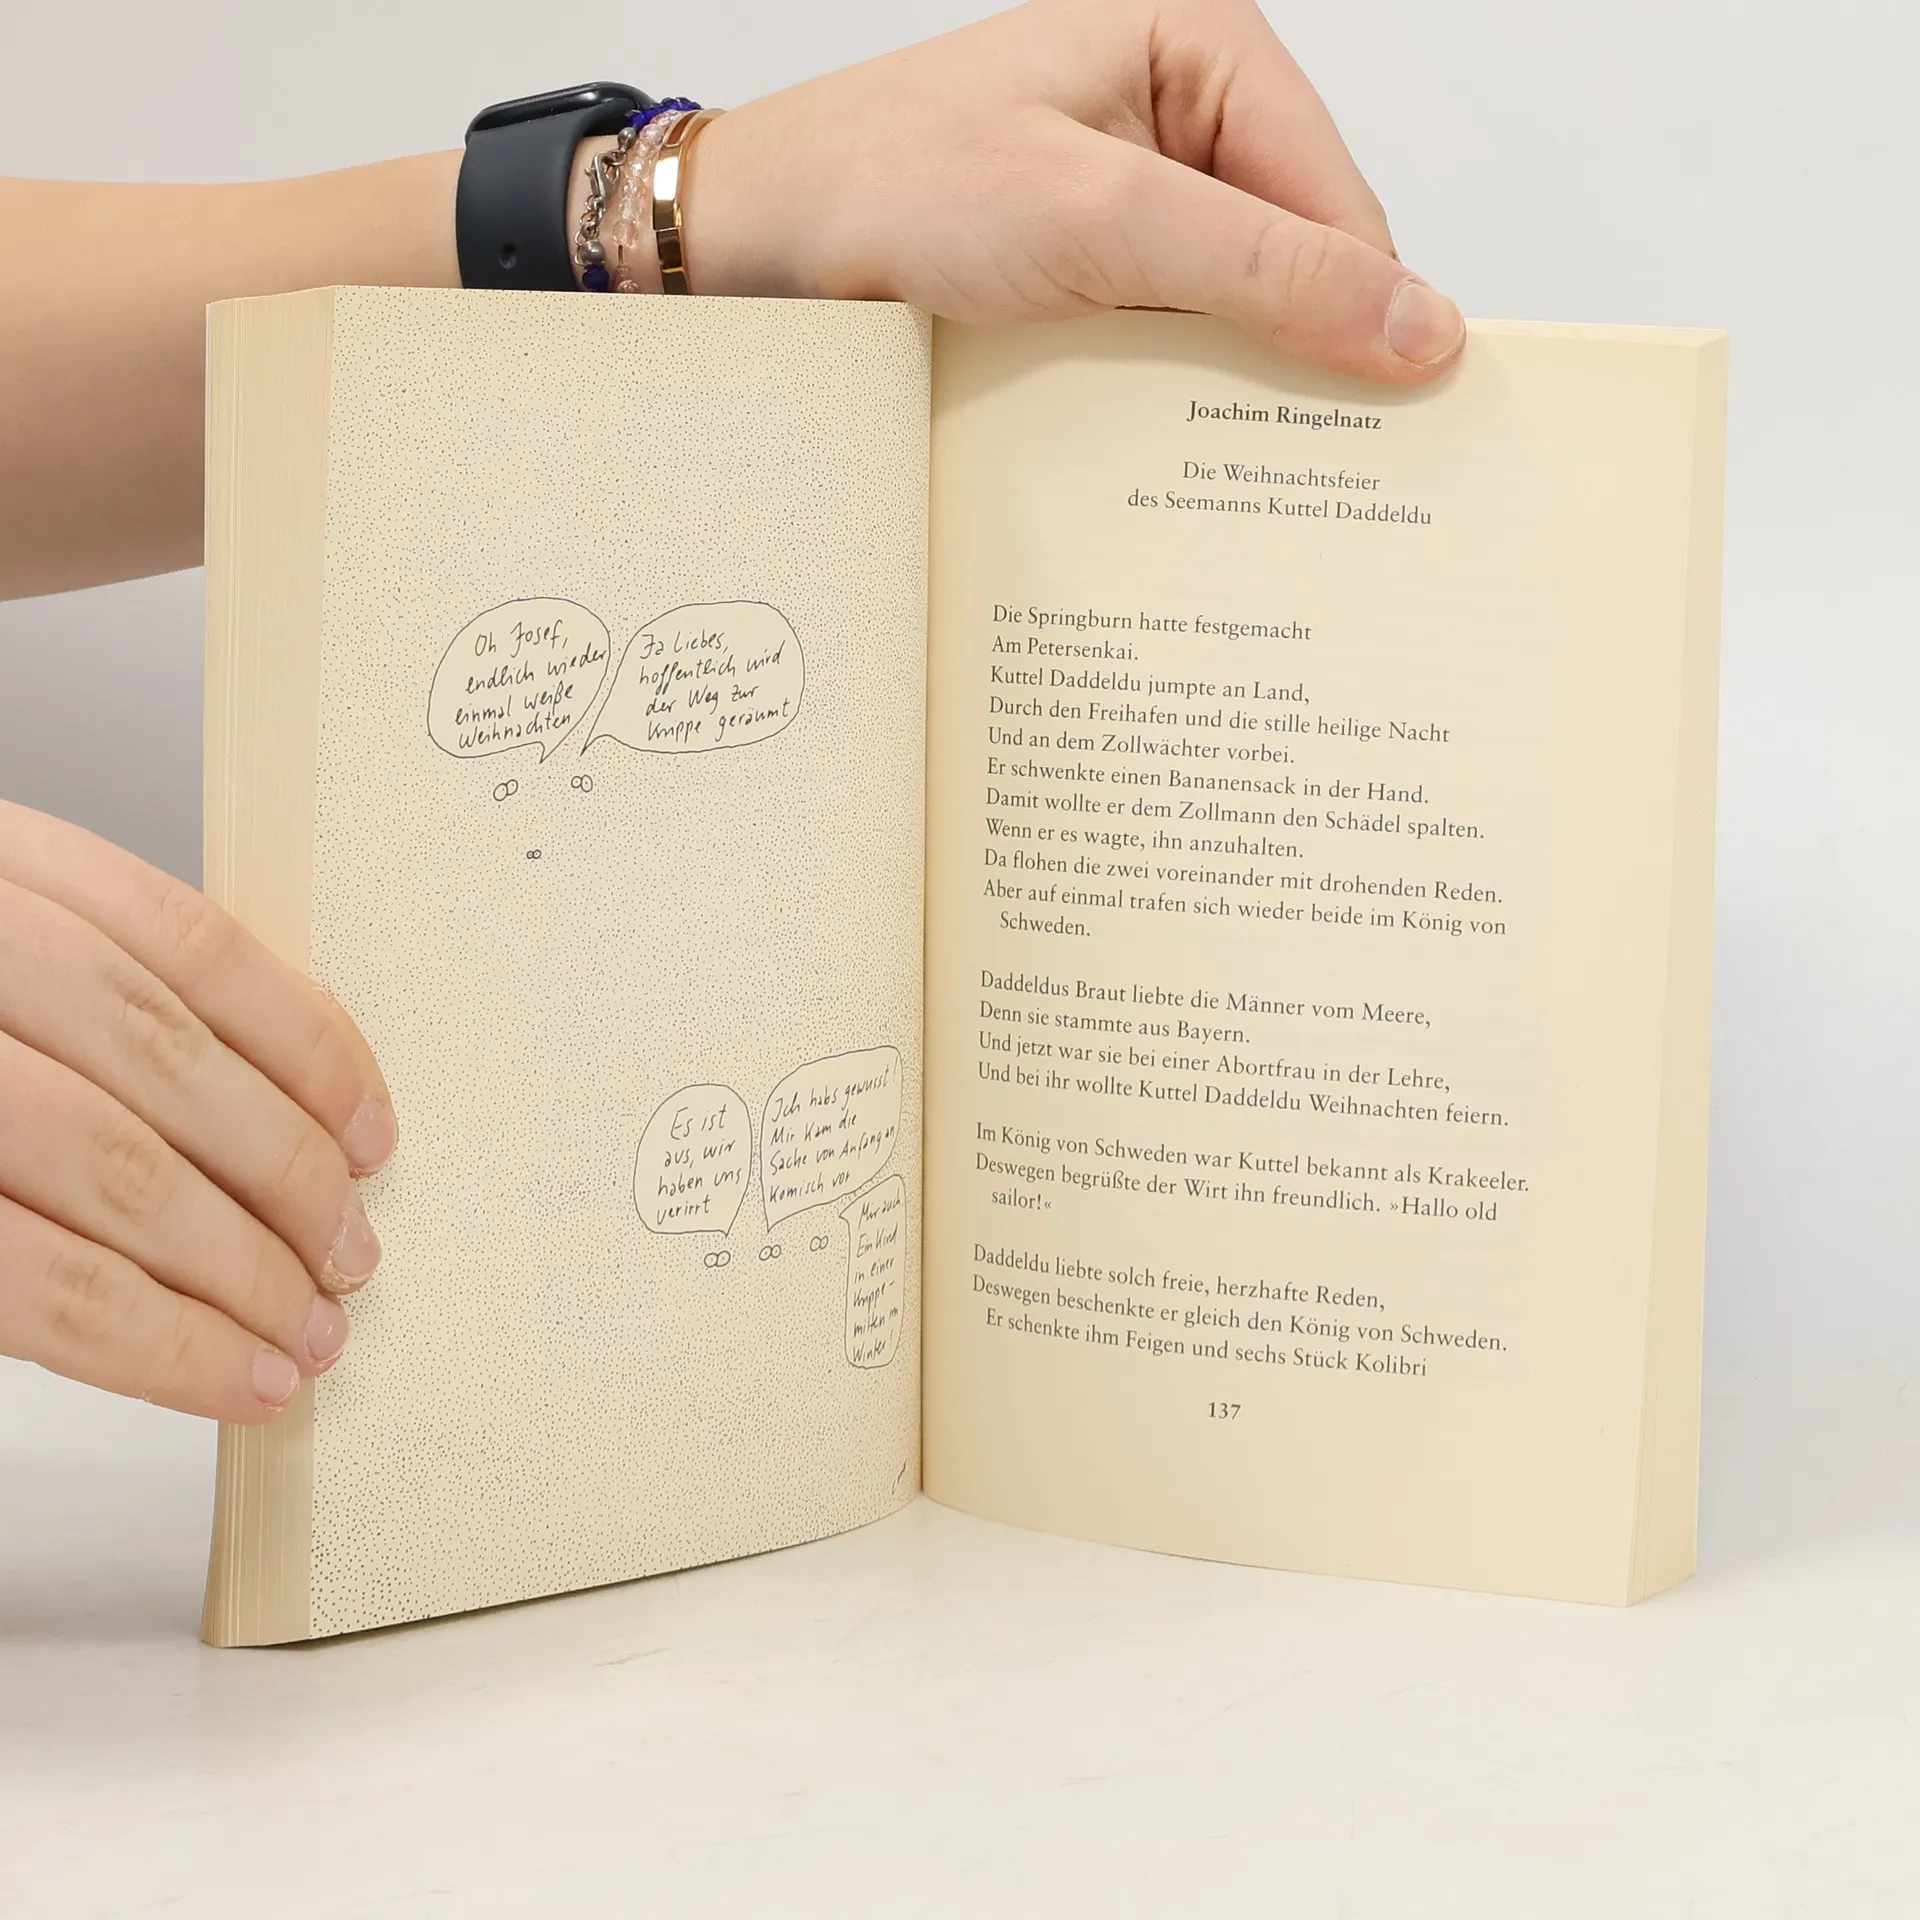 Oh Josef,
endlich wieder
einmal weiße
Weihnachten
Ja Liebes,
hoffentlich wird
der Weg zur
Krippe geräumt
Es ist
aus, wir
haben uns
verirrt
Ich habs gewusst!
Mir kam die
Sache von Anfang an
komisch vor
Mir auch
Ein Kind
in einer
Krippe –
mitten im
Winter!
Joachim Ringelnatz
Die Weihnachtsfeier
des Seemanns Kuttel Daddeldu
Die Springburn hatte festgemacht
Am Petersenkai.
Kuttel Daddeldu jumpte an Land,
Durch den Freihafen und die stille heilige Nacht
Und an dem Zollwächter vorbei.
Er schwenkte einen Bananensack in der Hand.
Damit wollte er dem Zollmann den Schädel spalten.
Wenn er es wagte, ihn anzuhalten.
Da flohen die zwei voreinander mit drohenden Reden.
Aber auf einmal trafen sich wieder beide im König von
Schweden.
Daddeldus Braut liebte die Männer vom Meere,
Denn sie stammte aus Bayern.
Und jetzt war sie bei einer Abortfrau in der Lehre,
Und bei ihr wollte Kuttel Daddeldu Weihnachten feiern.
Im König von Schweden war Kuttel bekannt als Krakeeler.
Deswegen begrüßte der Wirt ihn freundlich. »Hallo old
sailor!«
Daddeldu liebte solch freie, herzhafte Reden,
Deswegen beschenkte er gleich den König von Schweden.
Er schenkte ihm Feigen und sechs Stück Kolibri
137